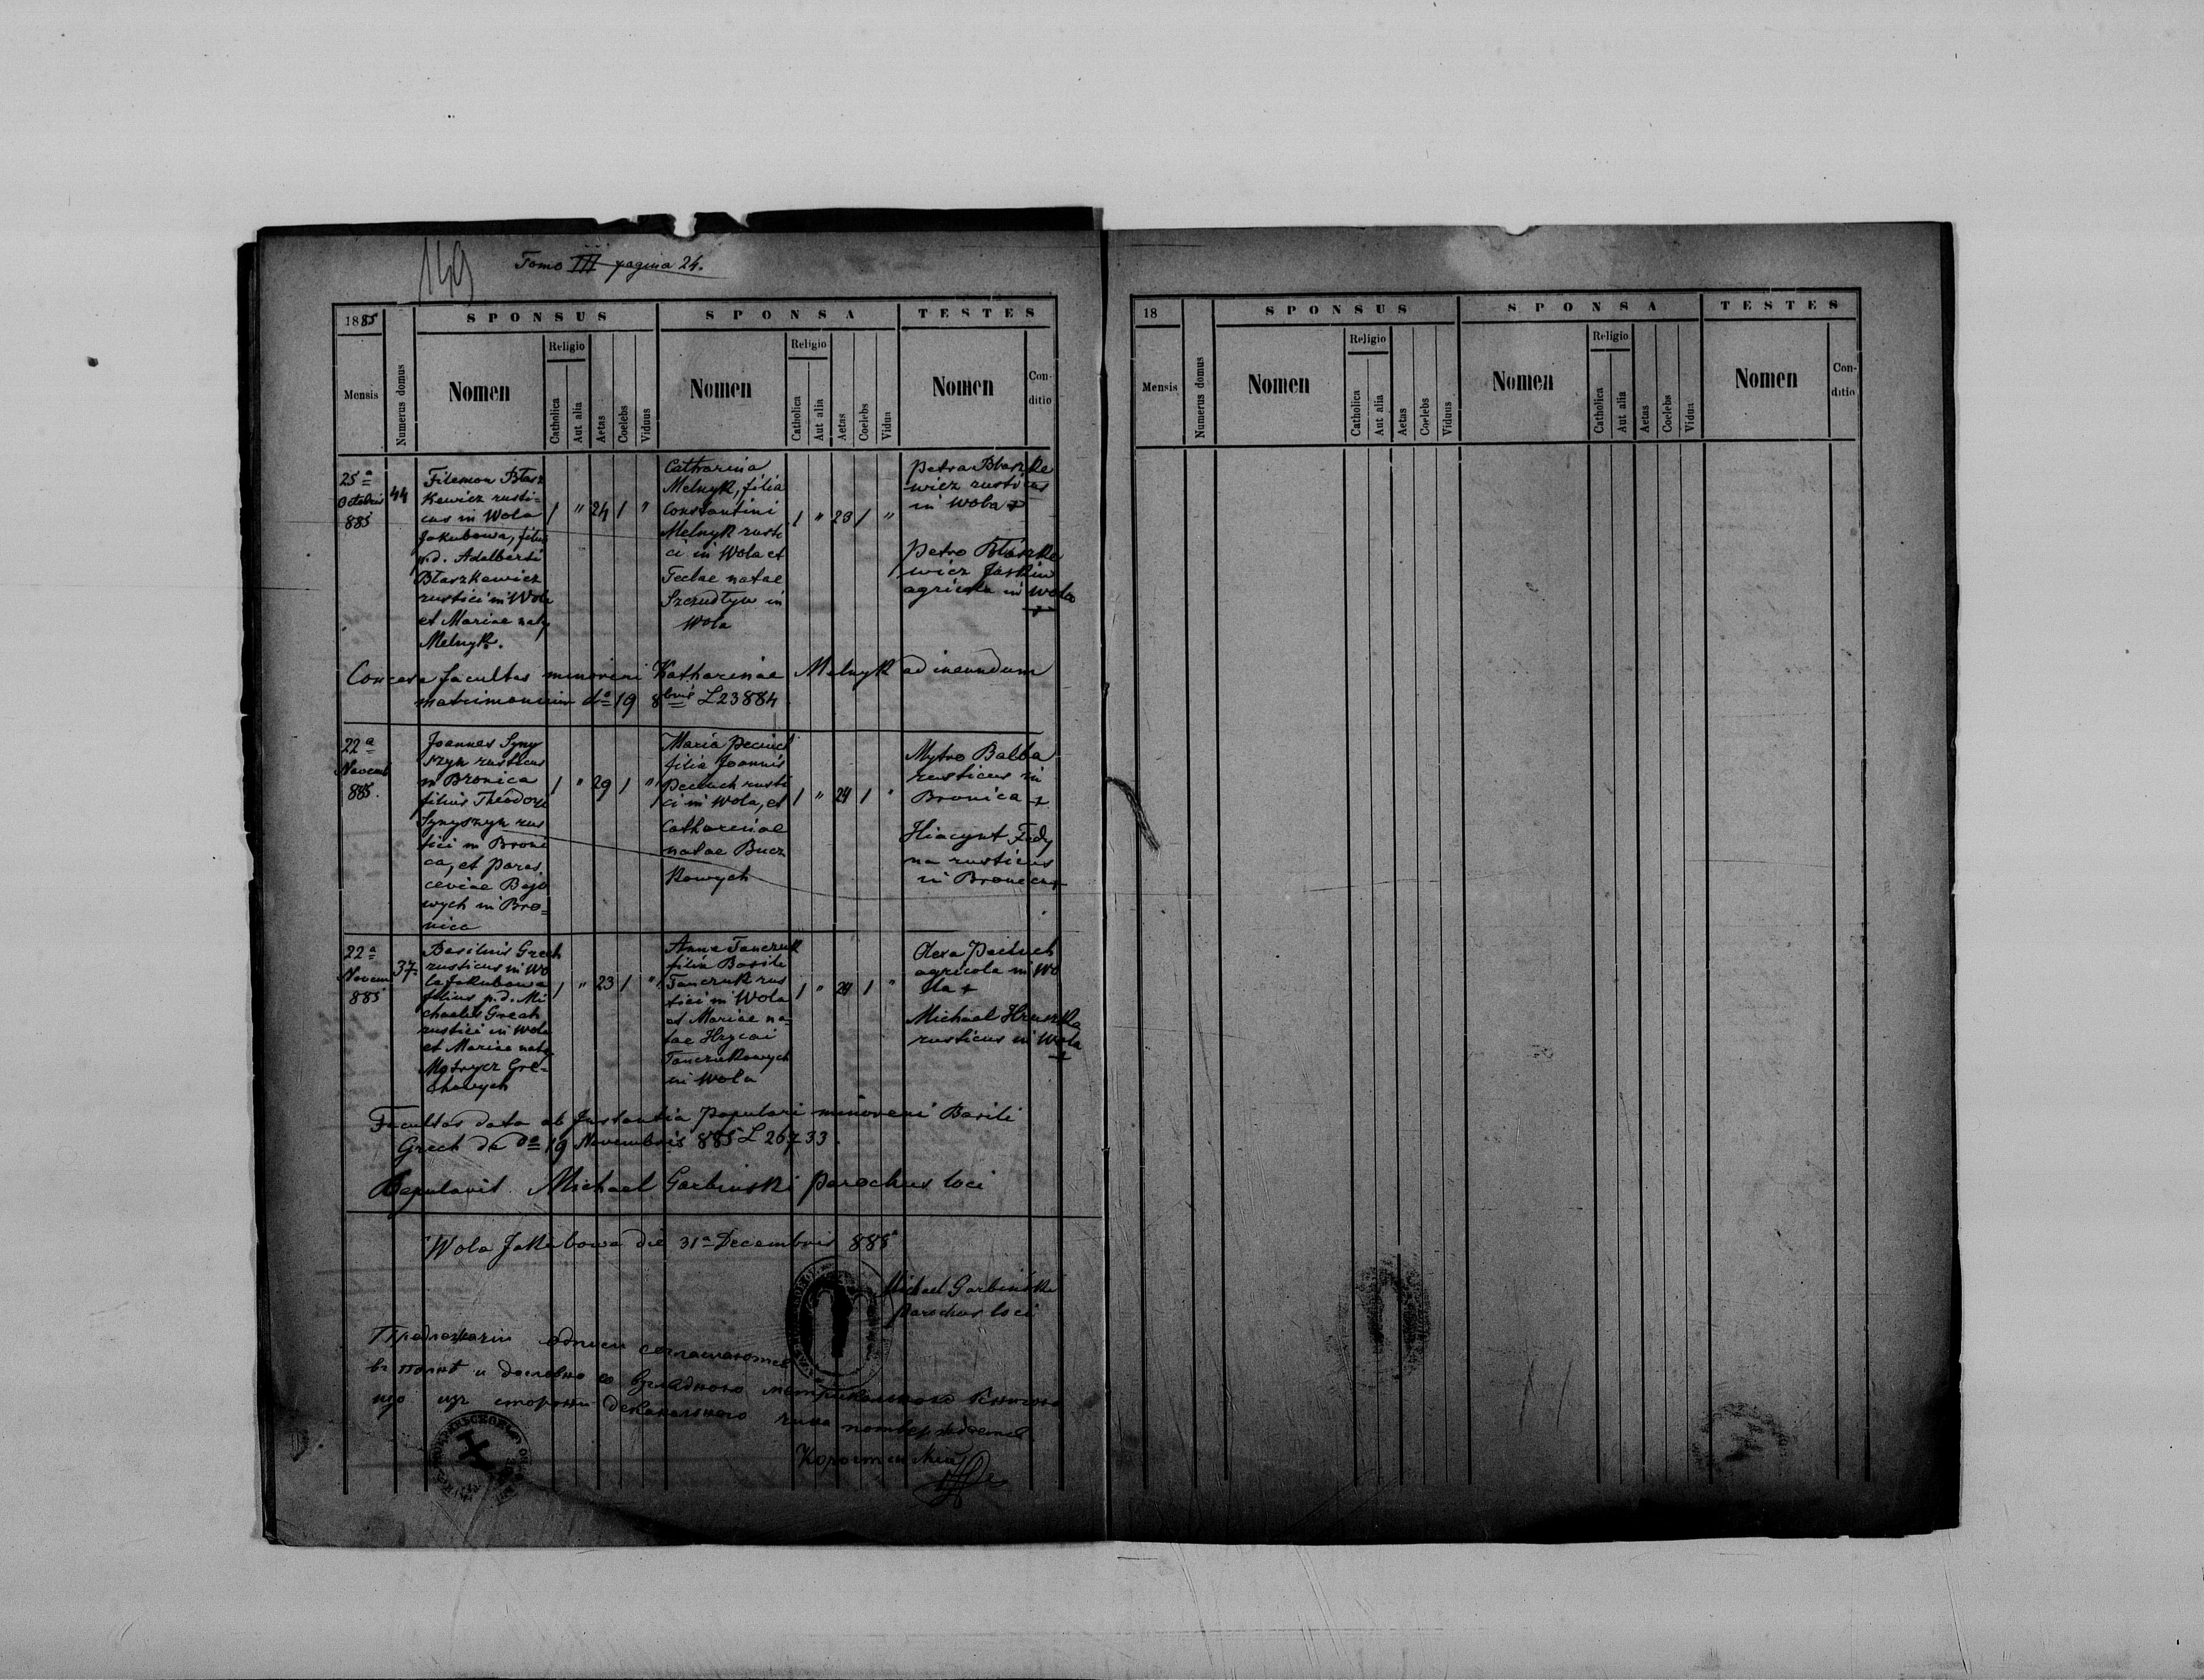 149
Tomo III pagina 24.
1885
SPONSUS
SPONSA
TESTES
Mensis
Numerus domus
Nomen
Religio
Catholica
Aut alia
Aetas
Coelebs
Viduus
Nomen
Religio
Catholica
Aut alia
Aetas
Coelebs
Vidua
Nomen
Con-
ditio
25a
Octobris
885
44
Filemon Błasz
kewicz rusti-
cus in Wola
Jakubowa, filius
p.d. Adalberti
Błaszkewicz
rustici in Wola
et Mariae natae
Melnyk.
1 " 24 1 "
Catharina
Melnyk, filia
Constantini
Melnyk rusti
ci in Wola et
Teclae natae
Szczudływ in
Wola
1 " 23 1 "
Petro Błaszke
wicz rusticus
in Wola +
Petro Błaszke
wicz Jaskiw
agricola in Wola
+
Concessa facultas minoreni Katharinae Melnyk ad ineundum
matrimonium do 19 8bris L 23884
22a
Novemb
885.
Joannes Syny
szyn rusticus
in Bronica
filius Theodori
Synyszyn rus
tici in Broni
ca, et Paras
ceviae Bojo
wych in Bro-
nica
1 " 29 1 "
Maria Peciuch
filia Joannis
Peciuch rusti
ci in Wola, et
Catharinae
natae Bucz
kowych
1 " 24 1 "
Mytro Balba
rusticus in
Bronica +
Hiacynt Fedy
na rusticus
in Bronica +
22a
Novem
885
37.
Basilius Grech
rusticus in Wo
la Jakubowa
filius p.d. Mi
chaelis Grech
rustici in Wola
et Mariae natae
Mytrycz Gre-
chowych
1 " 23 1 "
Anna Tanczuk
filia Basili
Tanczuk rus
tici in Wola
et Mariae na-
tae Hrycai
Tanczukowych
in Wola
1 " 24 1 "
Olexa Peciuch
agricola in Wo
lla +
Michael Hruszka
rusticus in Wola
+
Facultas data ab Instantia Pupulari minoreni Basili
Grech de do 19 Novembris 885 L 26733.
Copulavit Michael Garbinski parochus loci
Wola Jakubowa die 31a Decembris 885
Michael Garbiński
parochus loci
въ полнѣ и дословно со
що изъ стороны деканального
18
SPONSUS
SPONSA
TESTES
Mensis
Numerus domus
Nomen
Religio
Catholica
Aut alia
Aetas
Coelebs
Viduus
Nomen
Religio
Catholica
Aut alia
Aetas
Coelebs
Vidua
Nomen
Con-
ditio